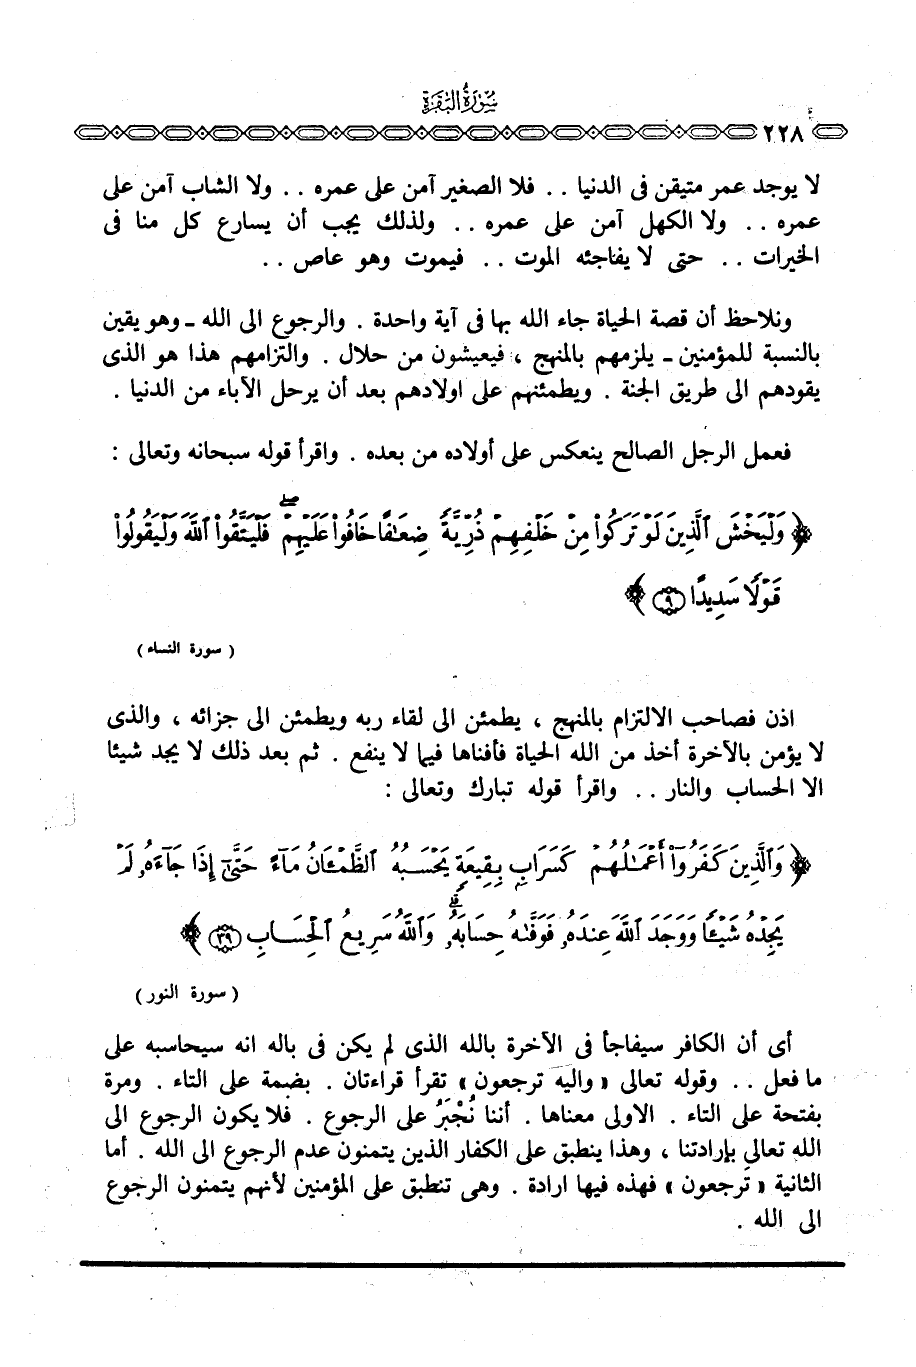 سورة البقرة
٢٢٨
لا يوجد عمر متيقن فى الدنيا .. فلا الصغير آمن على عمره .. ولا الشاب آمن على
عمره .. ولا الكهل آمن على عمره .. ولذلك يجب أن يسارع كل منا فى
الخيرات .. حتى لا يفاجئه الموت .. فيموت وهو عاص ..
ونلاحظ أن قصة الحياة جاء الله بها فى آية واحدة . والرجوع الى الله ـ وهو يقين
بالنسبة للمؤمنين ـ يلزمهم بالمنهج ، فيعيشون من حلال . والتزامهم هذا هو الذى
يقودهم الى طريق الجنة . ويطمئنهم على اولادهم بعد أن يرحل الآباء من الدنيا .
فعمل الرجل الصالح ينعكس على أولاده من بعده . واقرأ قوله سبحانه وتعالى :
﴿ وَلْيَخْشَ ٱلَّذِينَ لَوْ تَرَكُوا۟ مِنْ خَلْفِهِمْ ذُرِّيَّةً ضِعَـٰفًا خَافُوا۟ عَلَيْهِمْ ۖ فَلْيَتَّقُوا۟ ٱللَّهَ وَلْيَقُولُوا۟
قَوْلًا سَدِيدًا ۝٩ ﴾
( سورة النساء )
اذن فصاحب الالتزام بالمنهج ، يطمئن الى لقاء ربه ويطمئن الى جزائه ، والذى
لا يؤمن بالآخرة أخذ من الله الحياة فأفناها فيما لا ينفع . ثم بعد ذلك لا يجد شيئا
الا الحساب والنار .. واقرأ قوله تبارك وتعالى :
﴿ وَٱلَّذِينَ كَفَرُوٓا۟ أَعْمَـٰلُهُمْ كَسَرَابٍۭ بِقِيعَةٍ يَحْسَبُهُ ٱلظَّمْـَٔانُ مَآءً حَتَّىٰٓ إِذَا جَآءَهُۥ لَمْ
يَجِدْهُ شَيْـًٔا وَوَجَدَ ٱللَّهَ عِندَهُۥ فَوَفَّىٰهُ حِسَابَهُۥ ۗ وَٱللَّهُ سَرِيعُ ٱلْحِسَابِ ۝٣٩ ﴾
( سورة النور )
أى أن الكافر سيفاجأ فى الآخرة بالله الذى لم يكن فى باله انه سيحاسبه على
ما فعل .. وقوله تعالى « واليه ترجعون » تقرأ قراءتان . بضمة على التاء . ومرة
بفتحة على التاء . الاولى معناها . أننا نُجْبَرُ على الرجوع . فلا يكون الرجوع الى
الله تعالى بإرادتنا ، وهذا ينطبق على الكفار الذين يتمنون عدم الرجوع الى الله . أما
الثانية « تَرجعون » فهذه فيها ارادة . وهى تنطبق على المؤمنين لأنهم يتمنون الرجوع
الى الله .